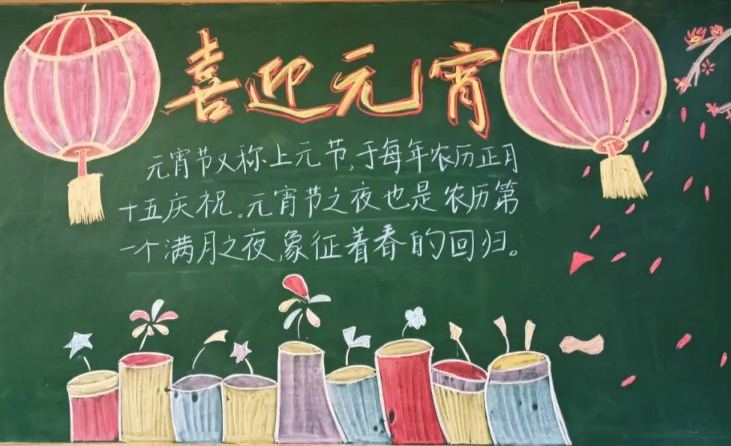 喜迎元宵
元宵节又称上元节,于每年农历正月
十五庆祝。元宵节之夜也是农历第
一个满月之夜,象征着春的回归。